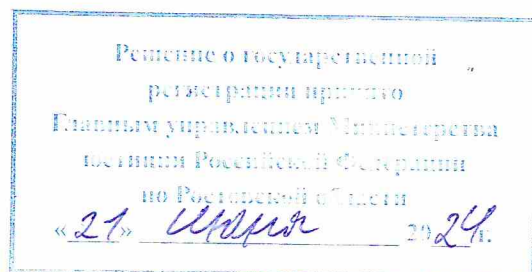 Решение о государственной
регистрации принято
Главным управлением Министерства
юстиции Российской Федерации
по Ростовской области
«21» июня 2024 г.